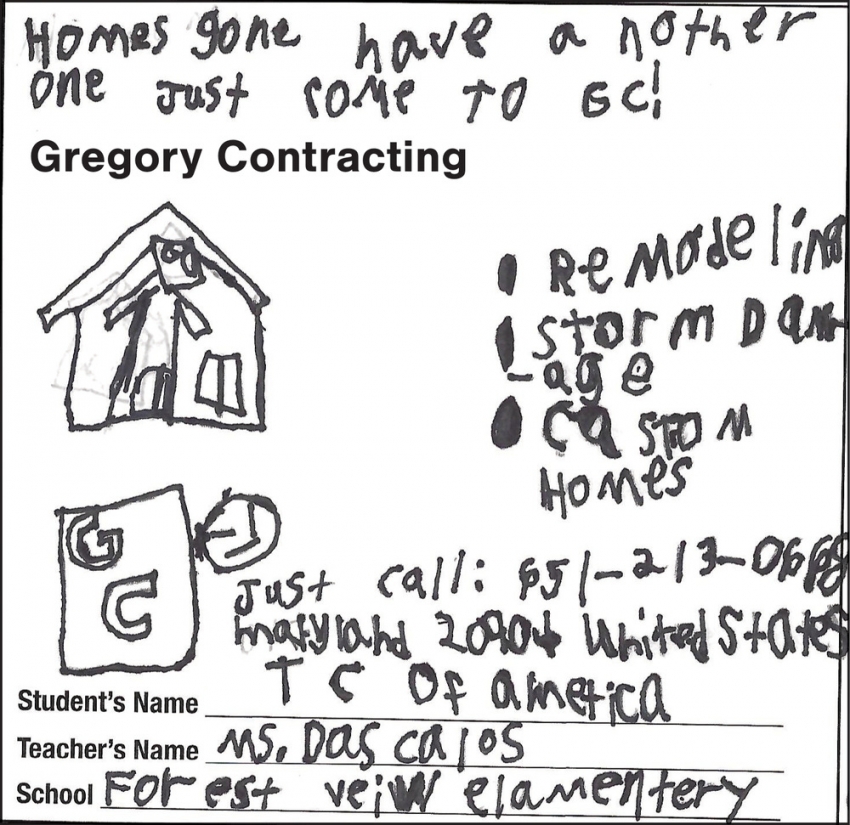 Homes gone have a nother
one Just come TO GC!
Gregory Contracting
Remodeling
Storm Dam
-age
Castom
Homes
G
C
Just call: 651-213-0668
maryland 20904 United States
T C Of america
Student's Name
Teacher's Name Ms. Das calos
School Forest veiw elamentery